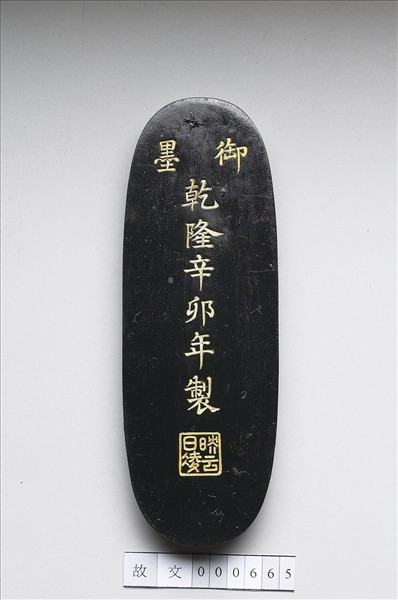 御墨
乾隆辛卯年製
映日凌云
故文000665